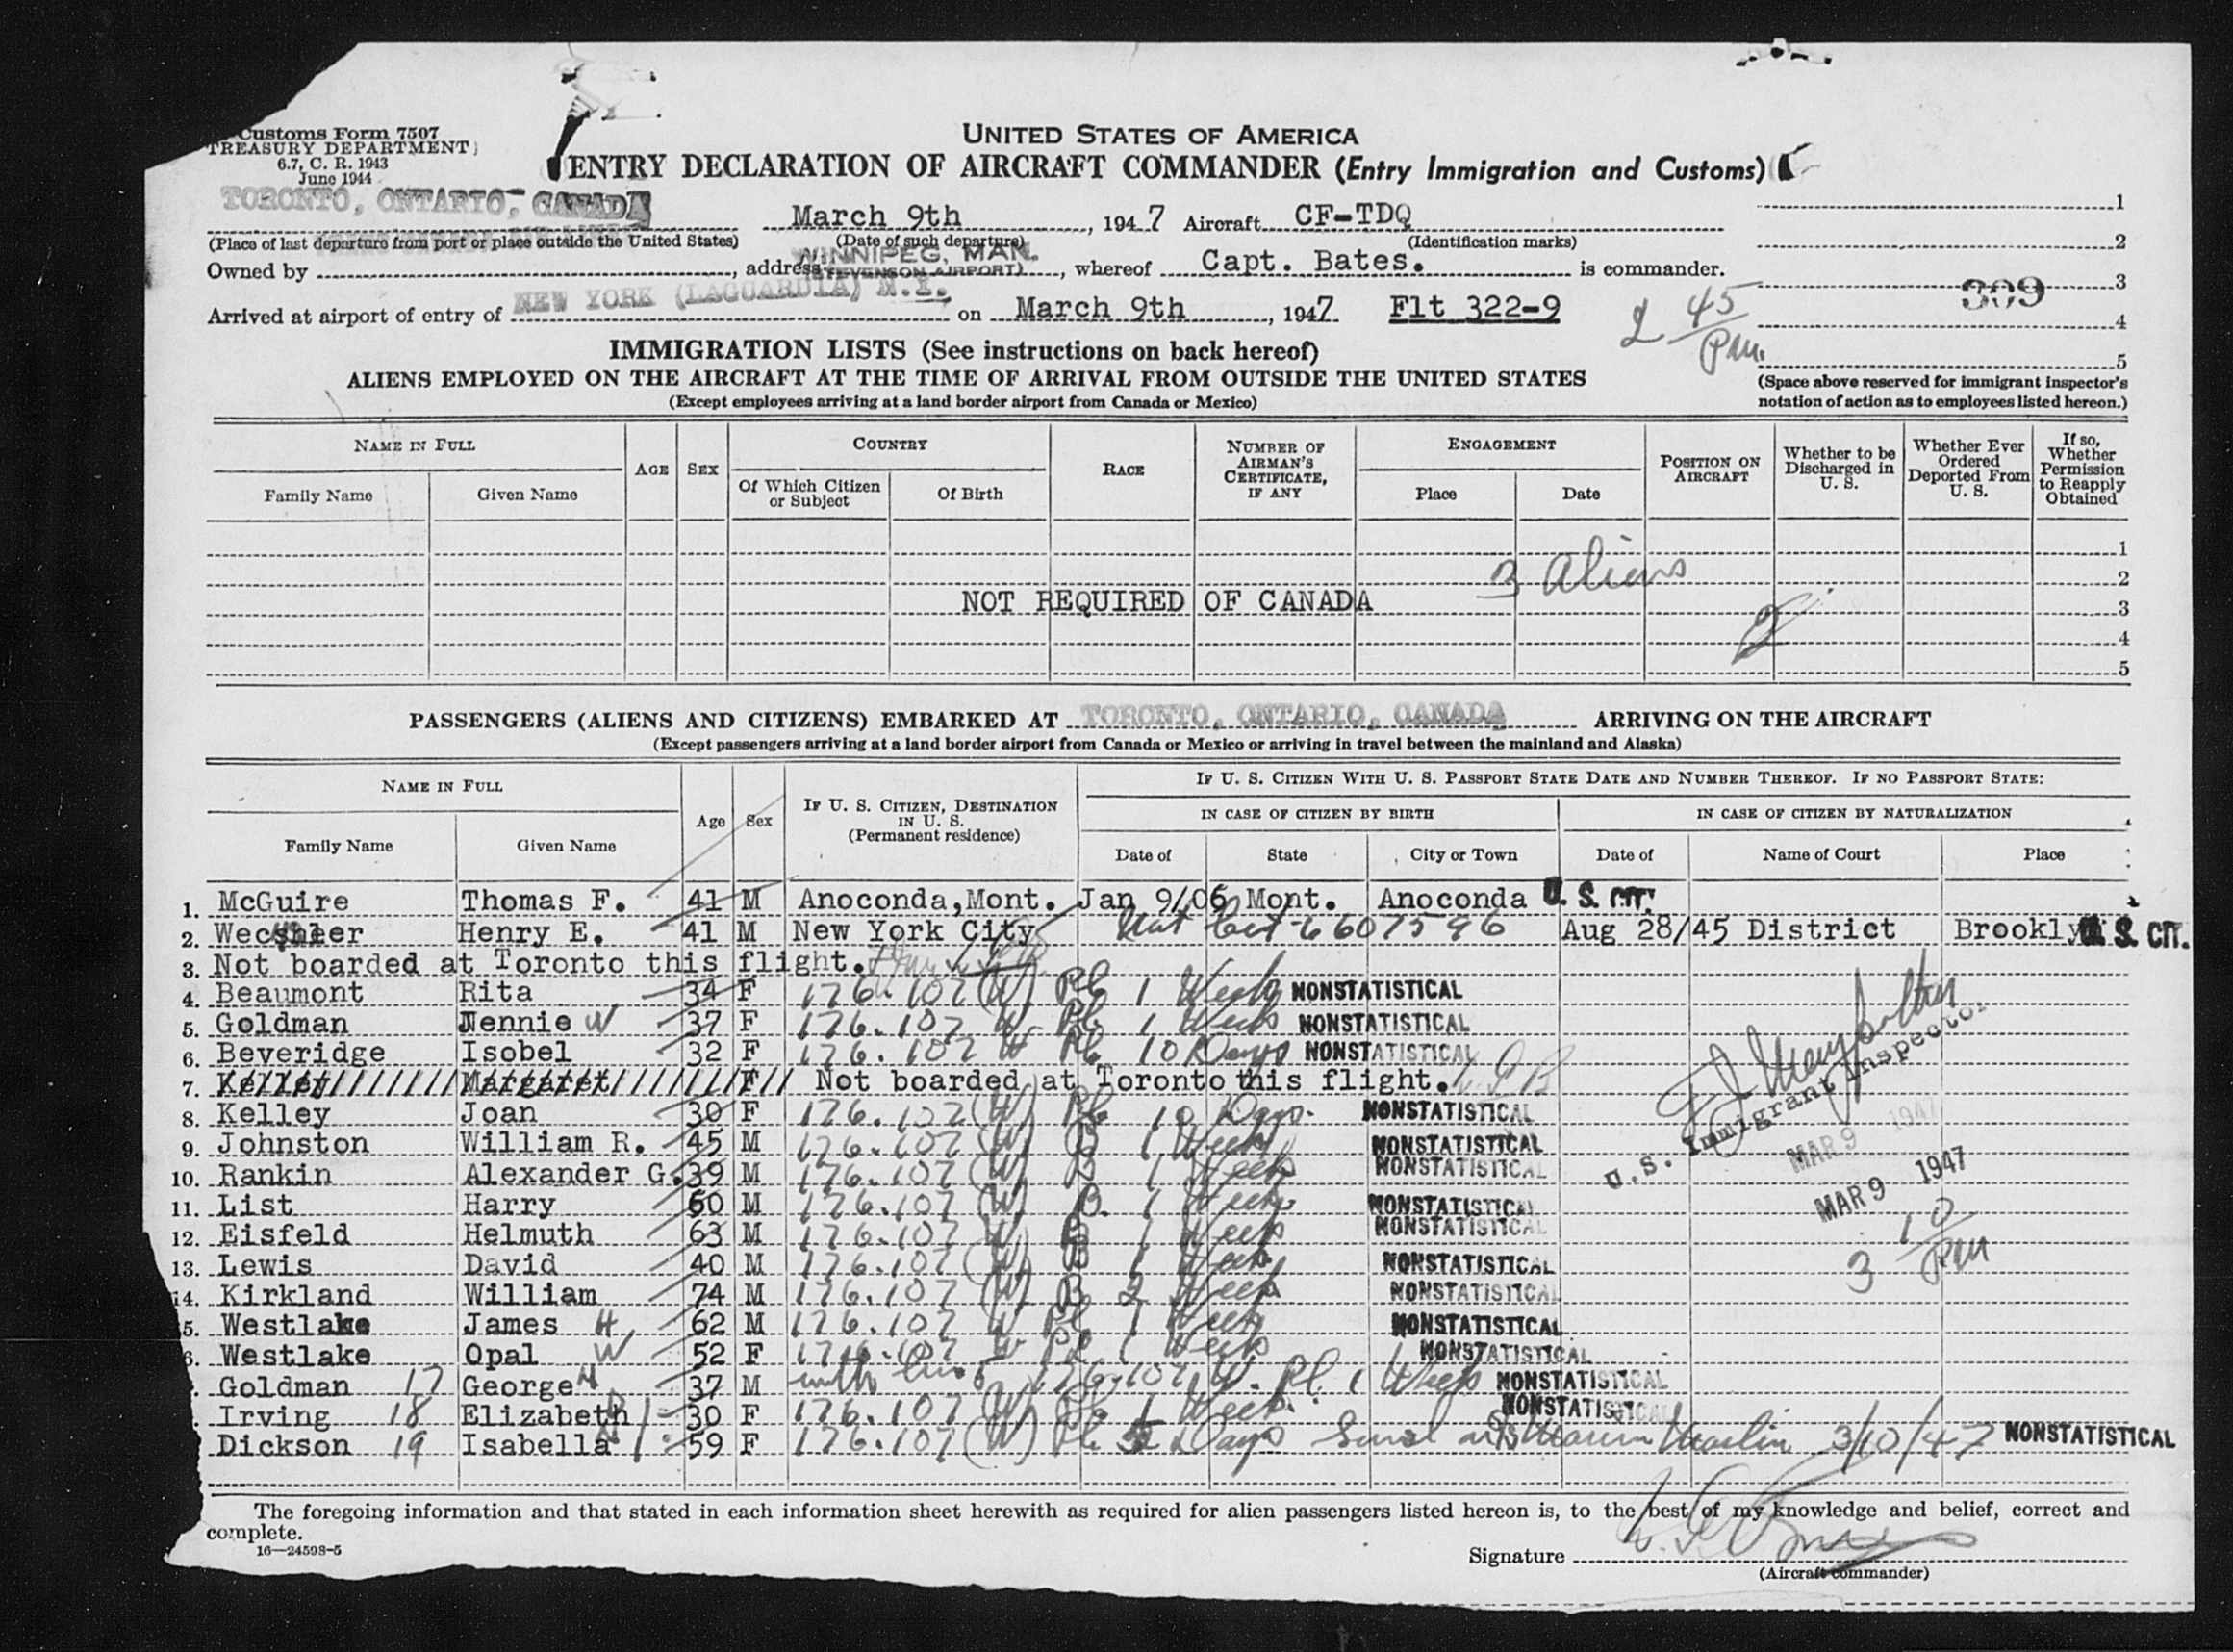 Customs Form 7507
TREASURY DEPARTMENT
6.7, C. R. 1943
June 1944
UNITED STATES OF AMERICA
ENTRY DECLARATION OF AIRCRAFT COMMANDER (Entry Immigration and Customs)
TORONTO, ONTARIO, CANADA March 9th, 1947 Aircraft CF-TDQ 1
(Place of last departure from port or place outside the United States) (Date of such departure) (Identification marks) 2
Owned by , address WINNIPEG, MAN. (STEVENSON AIRPORT), whereof Capt. Bates. is commander. 3
309
Arrived at airport of entry of NEW YORK (LAGUARDIA) N.Y. on March 9th, 1947 Flt 322-9 2 45 Pm. 4
5
IMMIGRATION LISTS (See instructions on back hereof)
ALIENS EMPLOYED ON THE AIRCRAFT AT THE TIME OF ARRIVAL FROM OUTSIDE THE UNITED STATES
(Except employees arriving at a land border airport from Canada or Mexico)
(Space above reserved for immigrant inspector's
notation of action as to employees listed hereon.)
NAME IN FULL
Family Name Given Name
AGE SEX
COUNTRY
Of Which Citizen or Subject Of Birth
RACE
NUMBER OF AIRMAN'S CERTIFICATE, IF ANY
ENGAGEMENT
Place Date
POSITION ON AIRCRAFT
Whether to be Discharged in U. S.
Whether Ever Ordered Deported From U. S.
If so, Whether Permission to Reapply Obtained
1
3 Aliens 2
NOT REQUIRED OF CANADA 3
2 4
5
PASSENGERS (ALIENS AND CITIZENS) EMBARKED AT TORONTO, ONTARIO, CANADA ARRIVING ON THE AIRCRAFT
(Except passengers arriving at a land border airport from Canada or Mexico or arriving in travel between the mainland and Alaska)
NAME IN FULL
Family Name Given Name
Age Sex
IF U. S. CITIZEN, DESTINATION IN U. S. (Permanent residence)
IF U. S. CITIZEN WITH U. S. PASSPORT STATE DATE AND NUMBER THEREOF. IF NO PASSPORT STATE:
IN CASE OF CITIZEN BY BIRTH IN CASE OF CITIZEN BY NATURALIZATION
Date of State City or Town Date of Name of Court Place
1. McGuire Thomas F. 41 M Anoconda, Mont. Jan 9/06 Mont. Anoconda U. S. CIT.
2. Henry E. 41 M New York City Nat Cert 6607596 Aug 28/45 District Brookly U. S. CIT.
3. Not boarded at Toronto this flight.
4. Beaumont Rita 34 F 176.107 (W) Pl 1 Week NONSTATISTICAL
5. Goldman Jennie W 37 F 176.107 W Pl 1 Week NONSTATISTICAL
6. Beveridge Isobel 32 F 176.107 W Pl 10 Days NONSTATISTICAL
7. Kelley Margaret F Not boarded at Toronto this flight.
8. Kelley Joan 30 F 176.107 (W) Pl 10 Days. NONSTATISTICAL
9. Johnston William R. 45 M 176.107 (W) B 1 Week NONSTATISTICAL
10. Rankin Alexander G. 39 M 176.107 (W) B 1 Week NONSTATISTICAL
11. List Harry 60 M 176.107 (W) B. 1 Week NONSTATISTICAL
12. Eisfeld Helmuth 63 M 176.107 W B 1 Week NONSTATISTICAL
13. Lewis David 40 M 176.107 (W) B 1 Week NONSTATISTICAL
14. Kirkland William 74 M 176.107 (W) B 2 Week NONSTATISTICAL
5. Westlake James H 62 M 176.107 W Pl 1 Week NONSTATISTICAL
6. Westlake Opal W 52 F 176.107 W Pl 1 Week NONSTATISTICAL
Goldman 17 George H 37 M with line 5 176.107 W. Pl. 1 Week NONSTATISTICAL
Irving 18 Elizabeth 30 F 176.107 (W) Pl. 1 Week. NONSTATISTICAL
Dickson 19 Isabella 59 F 176.107 (W) Pl Days 3/10/47 NONSTATISTICAL
U.S. Immigrant Inspector
MAR 9 1947
MAR 9 1947
3 10 PM
The foregoing information and that stated in each information sheet herewith as required for alien passengers listed hereon is, to the best of my knowledge and belief, correct and
complete.
16—24598-5
Signature
(Aircraft commander)